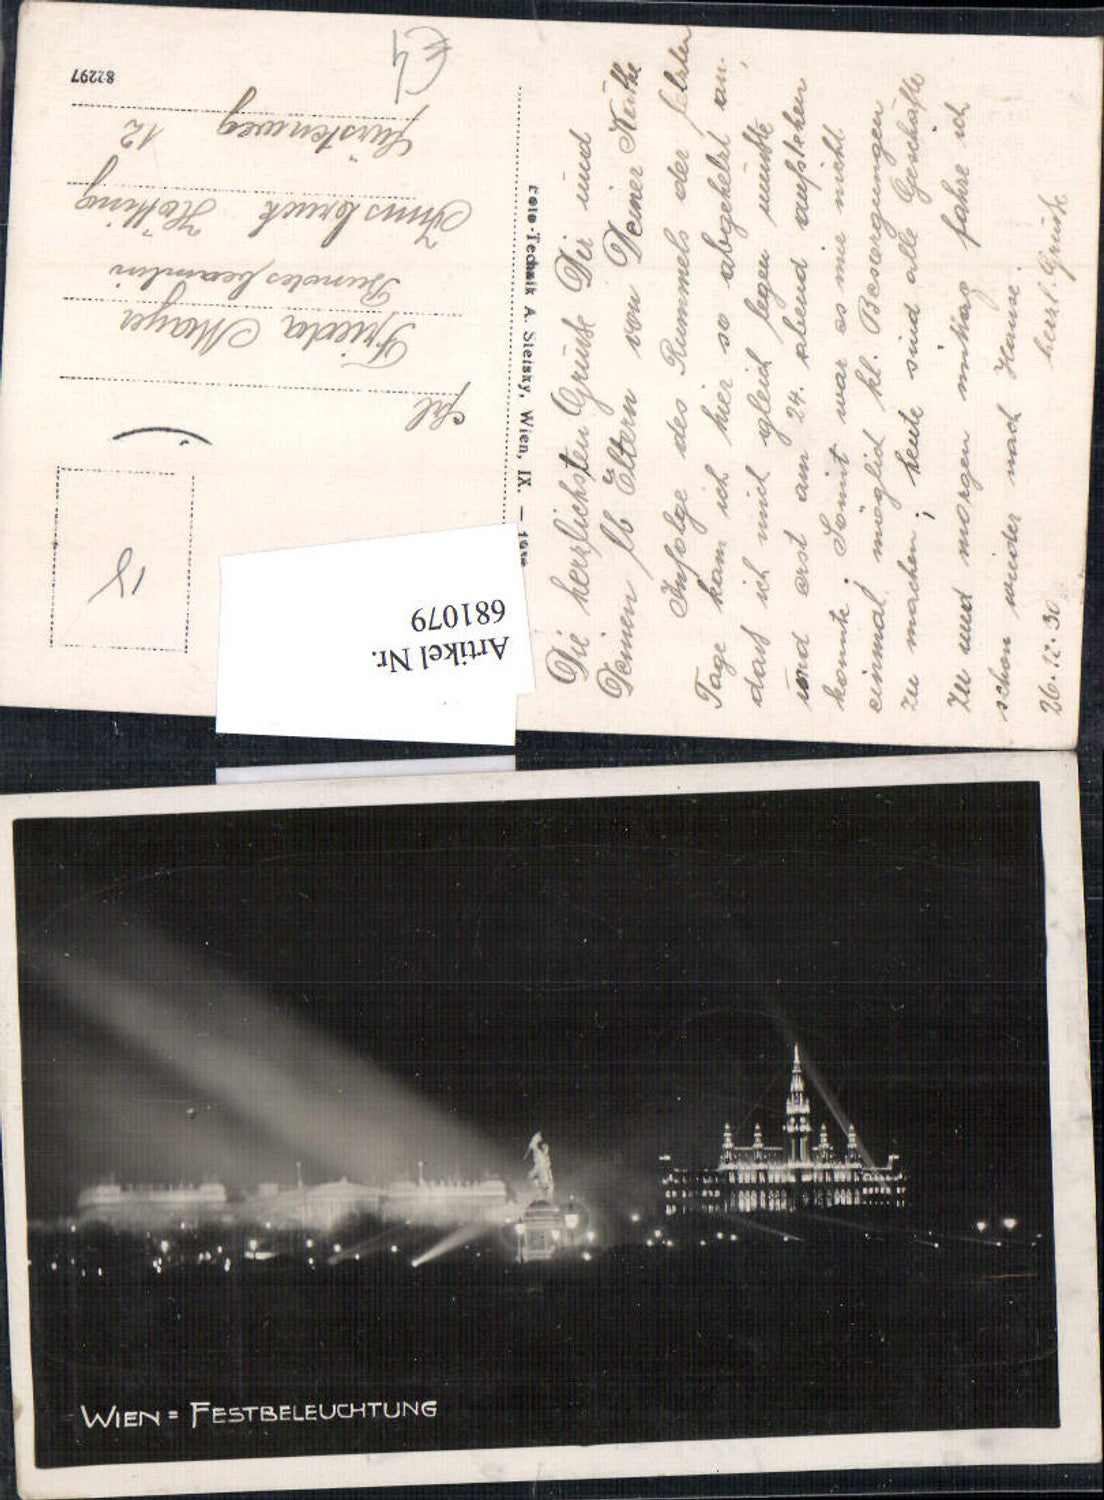 Die herzlichsten Grüße Dir und
Deinen lb Eltern von Deiner Käthe
Infolge des Rummels der letzten
Tage kam ich hier so abgehetzt an,
daß ich mich gleich legen mußte
und erst am 24. abend aufstehen
konnte. Somit war es mir nicht
einmal möglich kl. Besorgungen
zu machen; heute sind alle Geschäfte
zu und morgen mittag fahre ich
schon wieder nach Hause.
26.12.30 herzl. Grüße
Foto-Technik A. Sletsky, Wien, IX. —
Frl
Frieda Mayer
Bundesbeamtin
Innsbruck Hötting
Fürstenweg 12
82297
€4
18
Artikel Nr.
681079
WIEN = FESTBELEUCHTUNG